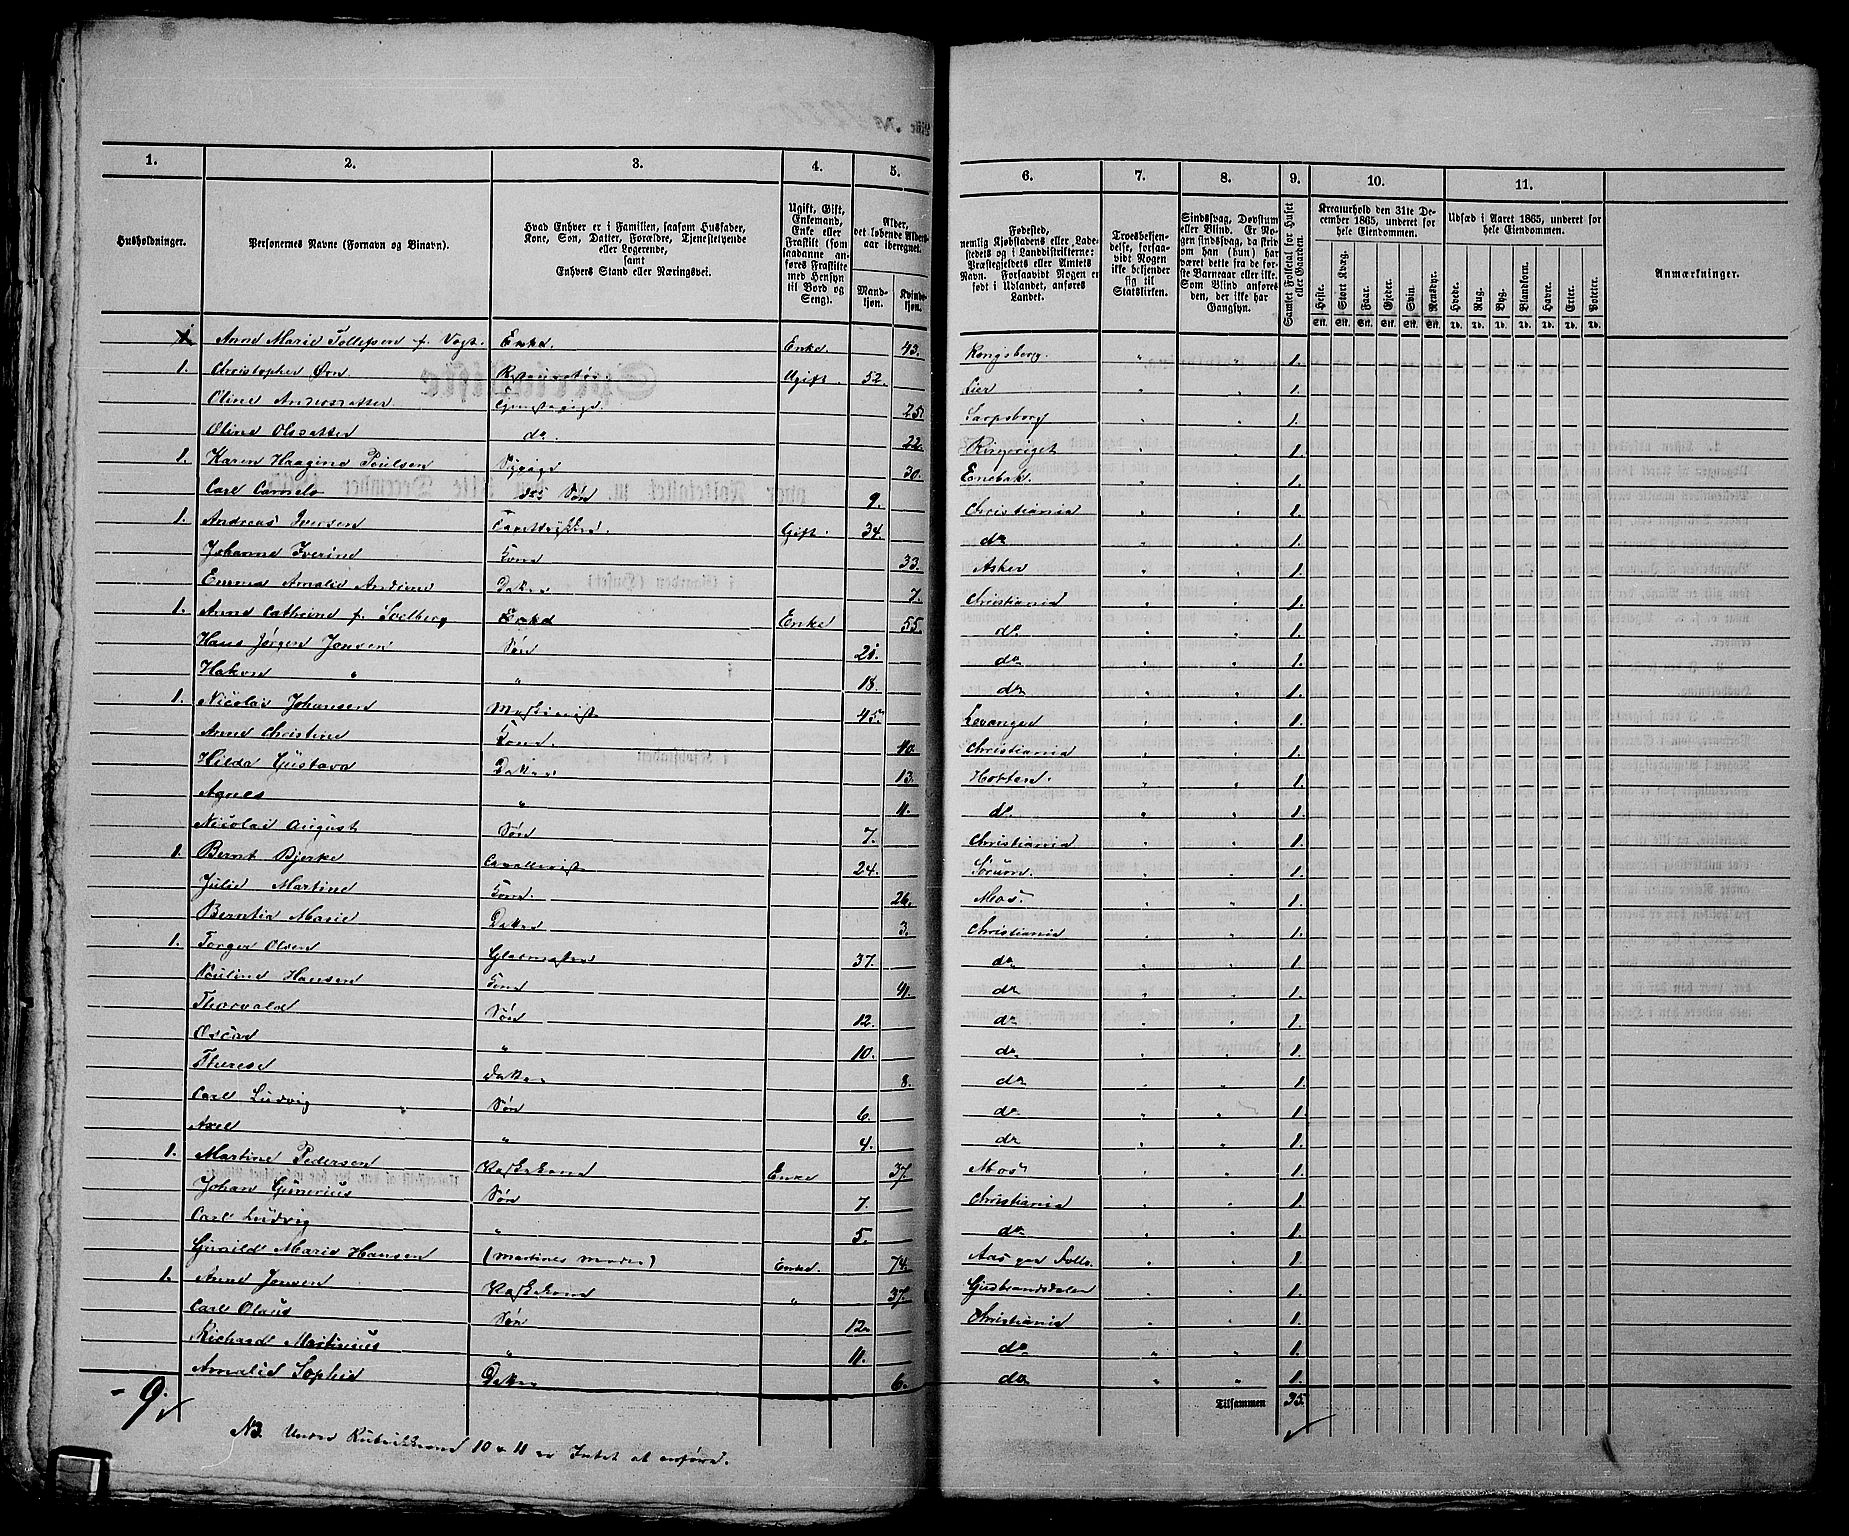 1. 2. 3. 4. 5. 6. 7. 8. 9. 10. 11.
Husholdninger.
Personernes Navne (Fornavn og Binavn).
Hvad Enhver er i Familien, saasom Husfader, Kone, Søn, Datter, Forældre, Tjenestetyende eller Logerende, samt Enhvers Stand eller Næringsvei.
Ugift, Gift, Enkemand, Enke eller Fraskilt (som saadanne anføres Fraskilte med Hensyn til Bord og Seng).
Alder, det løbende Aldersaar iberegnet.
Mandkjøn. Kvindekjøn.
Fødested, nemlig Kjøbstadens eller Ladestedets og i Landdistrikterne: Præstegjeldets eller Amtets Navn. Forsaavidt Nogen er født i Udlandet, anføres Landet.
Troesbekjendelse, forsaavidt Nogen ikke bekjender sig til Statskirken.
Sindssvag, Døvstum eller Blind. Er Nogen sindssvag, da skriv om han (hun) har været dette fra de første Barneaar eller ikke. Som Blind anføres den, der ikke har Gangsyn.
Samlet Folketal for Huset eller Gaarden.
Kreaturhold den 31te December 1865, underet for hele Eiendommen.
Heste. Stort Kvæg. Faar. Gjeder. Svin. Rensdyr.
Udsæd i Aaret 1865, underet for hele Eiendommen.
Hvede. Rug. Byg. Blandkorn. Havre. Erter. Poteter.
Anmærkninger.
1 Anne Marie Tollefsen f. Vogt. Enke. Enke. 43. Kongsberg. " " 1.
1. Christopher Ørn. Ugift. 52. Lier " " 1.
Oline Andersdatter. 25. Sarpsborg " " 1.
Oline Olsdatter do. 22. Ringeriget " " 1.
1. Karen Haagine Poulsen Sypige 30. Enebak. " " 1.
Carl Camelo ds Søn 9. Christiania " " 1.
1. Andreas Iversen Gift. 34. do " " 1.
Johanne Iverine Kone 33. Asker " " 1.
Emma Amalie Andrine Datter 7. Christiania " " 1.
1. Anne Cathrine f. Solberg Enke Enke 55. do " " 1.
Hans Jørgen Jensen Søn 21. do " " 1.
Hakon " " 18. do " " 1.
1. Nicolai Johansen Maskinist 45. Levanger " " 1.
Anne Christine Kone. 40. Christiania " " 1.
Hilda Gustava Datter 13. Horten. " " 1.
Agnes " 11. do. " " 1.
Nicolai August Søn 7. Christiania " " 1.
1. Bernt Bjerke Cavallerist 24. Sørum. " " 1.
Julie Martine Kone. 26. Mos. " " 1.
Berntia Marie Datter 3. Christiania " " 1.
1. Torger Olsen Glasmester 37. do " " 1.
Pouline Hansen Kone 41. do " " 1.
Thorvald Søn 12. do " " 1.
Oscar " 10. do " " 1.
Therese Datter 8. do " " 1.
Carl Ludvig Søn 6. do " " 1.
Axel " 4. do " " 1.
1. Martine Pedersen Vaskekone Enke 37. Mos " " 1.
Johan Gunerius Søn 7. Christiania " " 1.
Carl Ludvig " 5. do " " 1.
Gunild Marie Hansen (Martines Moder) Enke. 74. Aas " " 1.
1. Anne Jensen Vaskekone " 37. Gudbrandsdalen " " 1.
Carl Olaus Søn 12. Christiania " " 1.
Richard Martinius " 11. do " " 1.
Amalie Sophie Datter 6. do " " 1.
- 9. Tilsammen 35.
NB. Under Rubrikkerne 10 & 11 er Intet at anføre.